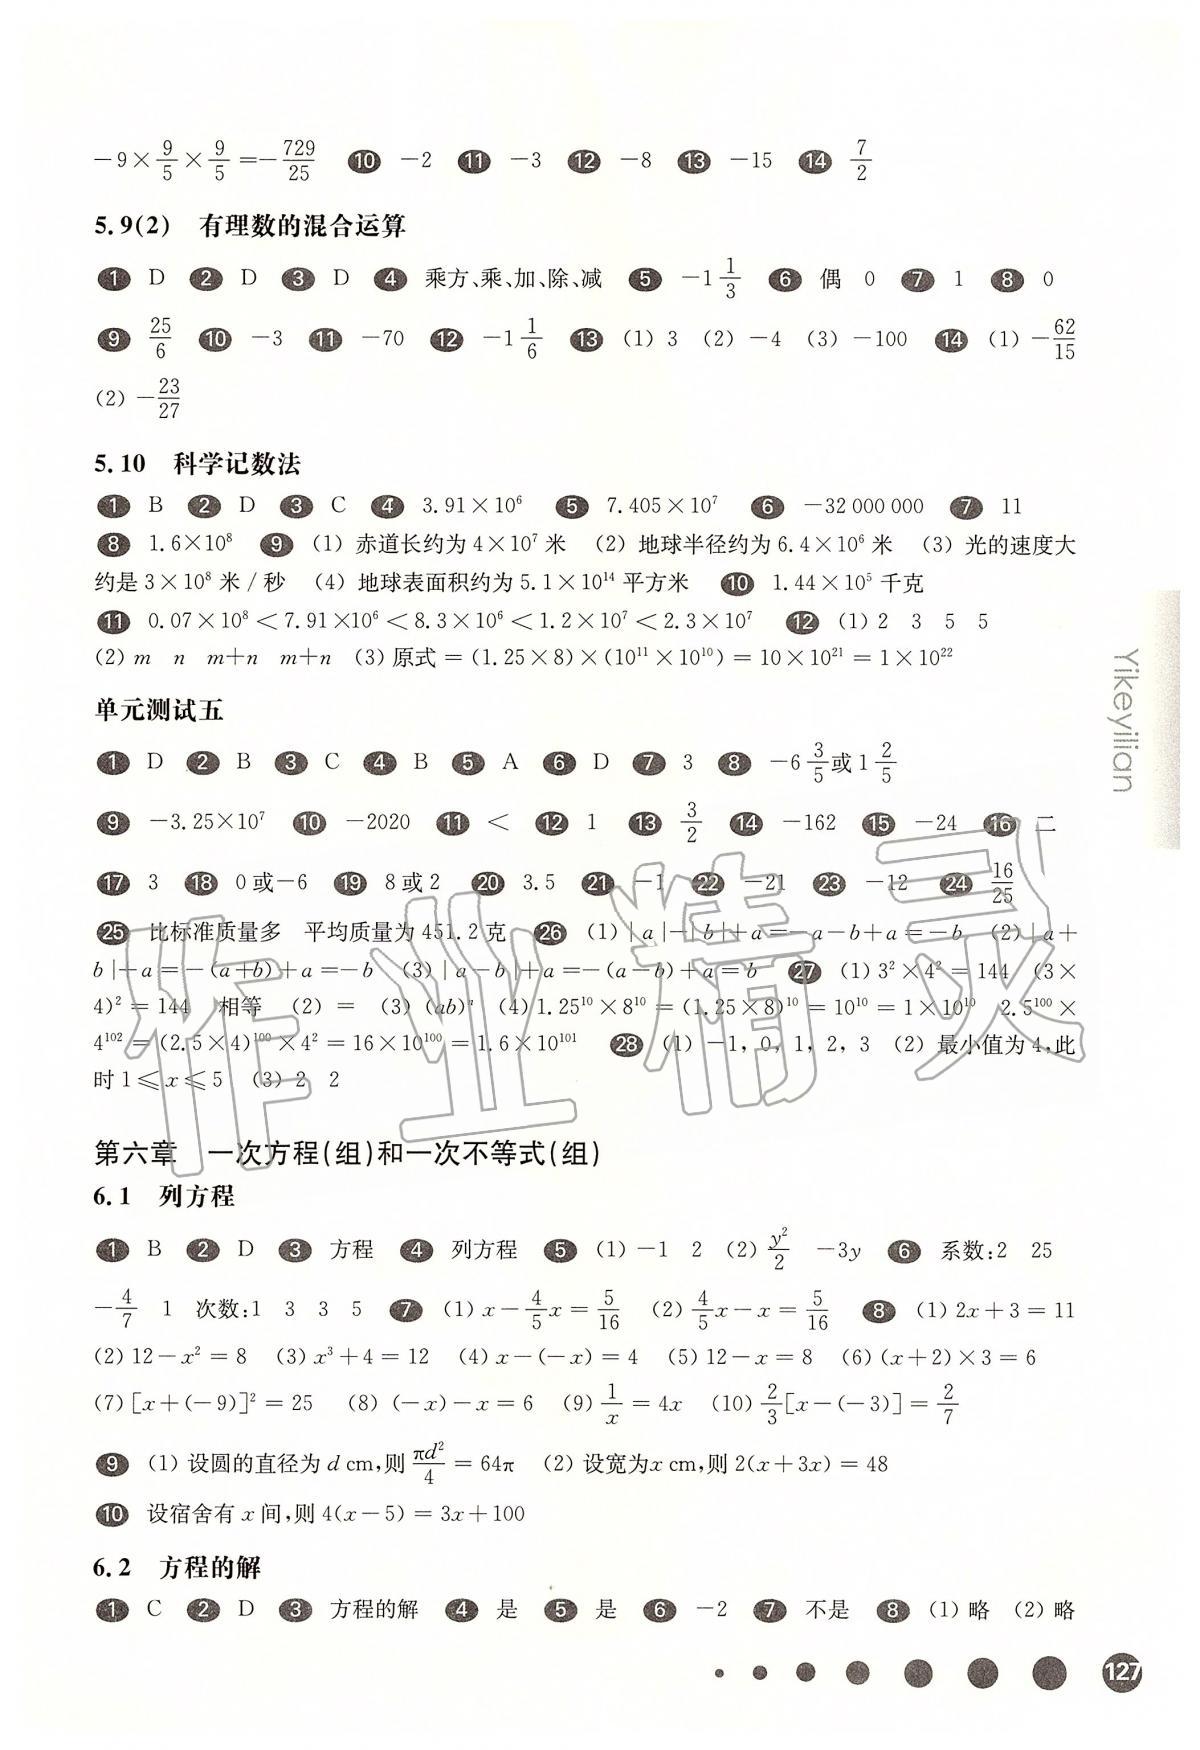 －9×9/5×9/5＝－729/25 ⑩ －2 ⑪ －3 ⑫ －8 ⑬ －15 ⑭ 7/2
5.9(2) 有理数的混合运算
① D ② D ③ D ④ 乘方、乘、加、除、减 ⑤ －1 1/3 ⑥ 偶 0 ⑦ 1 ⑧ 0
⑨ 25/6 ⑩ －3 ⑪ －70 ⑫ －1 1/6 ⑬ (1) 3 (2) －4 (3) －100 ⑭ (1) －62/15
(2) －23/27
5.10 科学记数法
① B ② D ③ C ④ 3.91×10⁶ ⑤ 7.405×10⁷ ⑥ －32 000 000 ⑦ 11
⑧ 1.6×10⁸ ⑨ (1) 赤道长约为 4×10⁷ 米 (2) 地球半径约为 6.4×10⁶ 米 (3) 光的速度大
约是 3×10⁸ 米/秒 (4) 地球表面积约为 5.1×10¹⁴ 平方米 ⑩ 1.44×10⁵ 千克
⑪ 0.07×10⁸＜7.91×10⁶＜8.3×10⁶＜1.2×10⁷＜2.3×10⁷ ⑫ (1) 2 3 5 5
(2) m n m＋n m＋n (3) 原式＝(1.25×8)×(10¹¹×10¹⁰)＝10×10²¹＝1×10²²
单元测试五
① D ② B ③ C ④ B ⑤ A ⑥ D ⑦ 3 ⑧ －6 3/5 或 1 2/5
⑨ －3.25×10⁷ ⑩ －2020 ⑪ ＜ ⑫ 1 ⑬ 3/2 ⑭ －162 ⑮ －24 ⑯ 二
⑰ 3 ⑱ 0 或－6 ⑲ 8 或 2 ⑳ 3.5 ㉑ －1 ㉒ －21 ㉓ －12 ㉔ 16/25
㉕ 比标准质量多 平均质量为 451.2 克 ㉖ (1) |a|－|b|＋a＝－a－b＋a＝－b (2) |a＋
b|＋a＝－(a＋b)＋a＝－b (3) |a－b|＋a＝－(a－b)＋a＝b ㉗ (1) 3²×4²＝144 (3×
4)²＝144 相等 (2) ＝ (3) (ab)ⁿ (4) 1.25¹⁰×8¹⁰＝(1.25×8)¹⁰＝10¹⁰＝1×10¹⁰ 2.5¹⁰⁰×
4¹⁰²＝(2.5×4)¹⁰⁰×4²＝16×10¹⁰⁰＝1.6×10¹⁰¹ ㉘ (1) －1, 0, 1, 2, 3 (2) 最小值为 4，此
时 1≤x≤5 (3) 2 2
第六章 一次方程(组)和一次不等式(组)
6.1 列方程
① B ② D ③ 方程 ④ 列方程 ⑤ (1) －1 2 (2) y²/2 －3y ⑥ 系数:2 25
－4/7 1 次数:1 3 3 5 ⑦ (1) x－4/5x＝5/16 (2) 4/5x－x＝5/16 ⑧ (1) 2x＋3＝11
(2) 12－x²＝8 (3) x³＋4＝12 (4) x－(－x)＝4 (5) 12－x＝8 (6) (x＋2)×3＝6
(7) [x＋(－9)]²＝25 (8) (－x)－x＝6 (9) 1/x＝4x (10) 2/3[x－(－3)]＝2/7
⑨ (1) 设圆的直径为 d cm，则 πd²/4＝64π (2) 设宽为x cm，则 2(x＋3x)＝48
⑩ 设宿舍有 x 间，则 4(x－5)＝3x＋100
6.2 方程的解
① C ② D ③ 方程的解 ④ 是 ⑤ 是 ⑥ －2 ⑦ 不是 ⑧ (1) 略 (2) 略
127
Yikeyilian
作业精灵